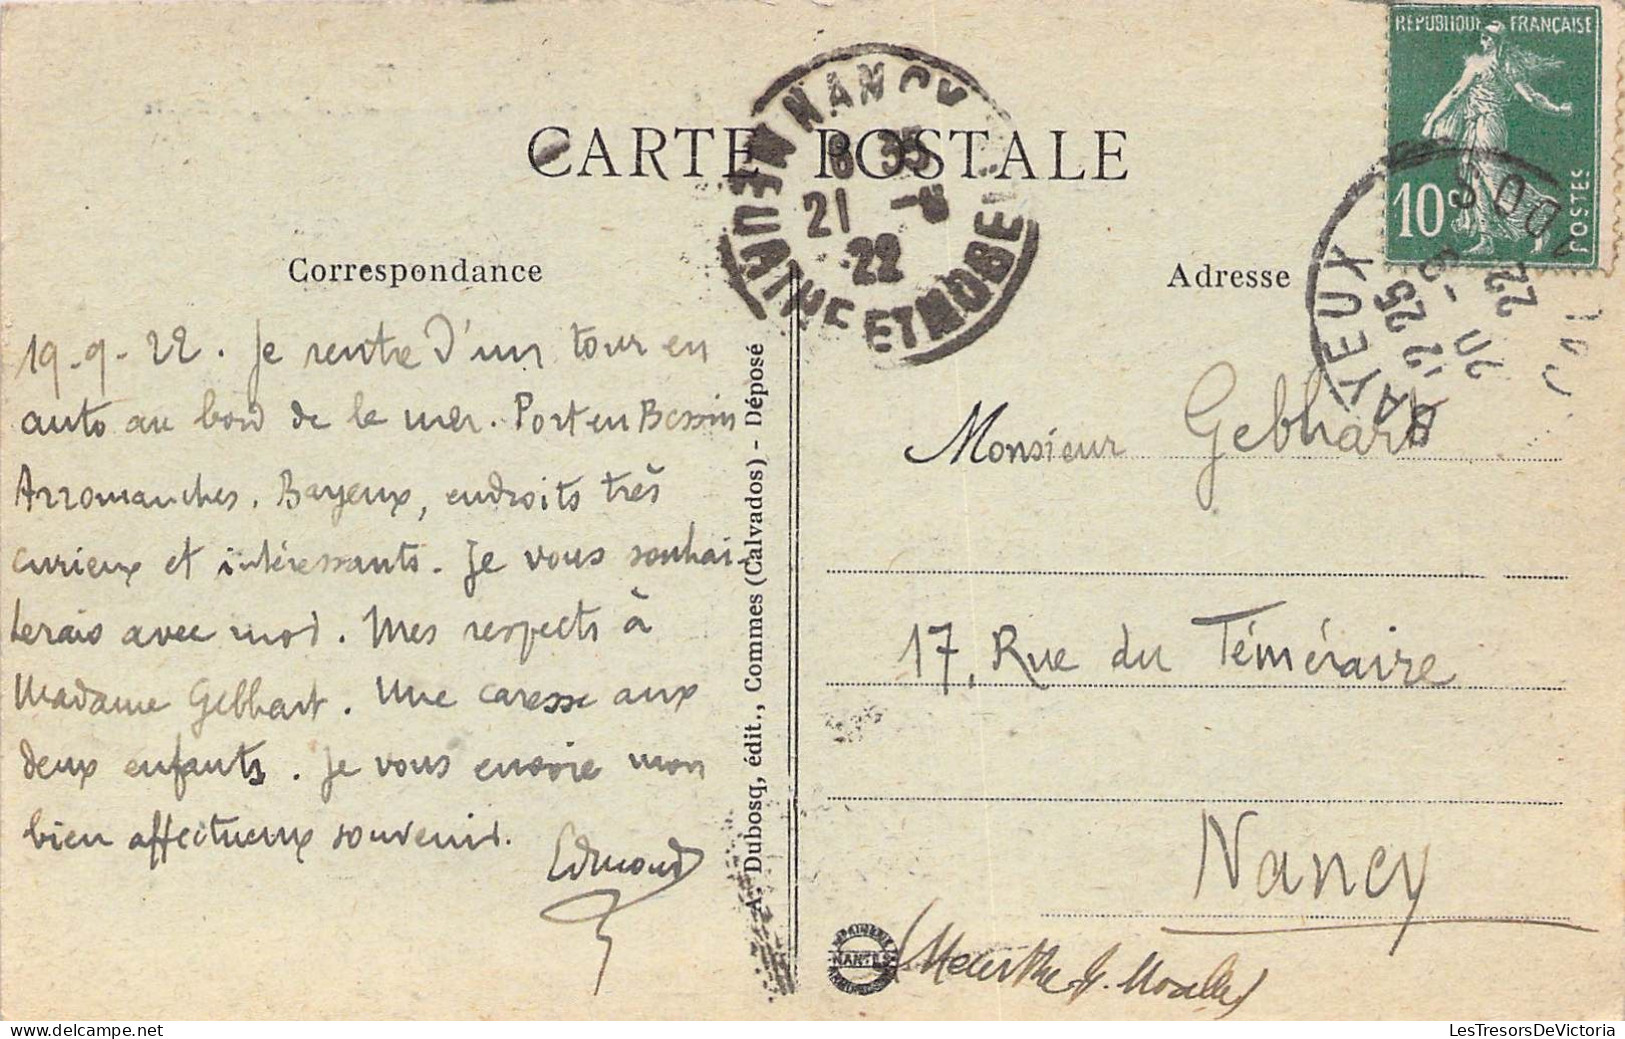 CARTE POSTALE
Correspondance
19-9-22. Je rentre d'un tour en
auto au bord de la mer. Port en Bessin
Arromanches. Bayeux, endroits très
curieux et intéressants. Je vous souhai-
terais avec moi. Mes respects à
Madame Gebhart. Une caresse aux
deux enfants. Je vous envoie mon
bien affectueux souvenir.
Edmond
A. Dubosq, édit., Commes (Calvados) - Déposé
NANCY
MEURTHE ET MOSELLE
8 35
21 - 9
22
Adresse
RÉPUBLIQUE FRANÇAISE
10c
POSTES
BAYEUX
12 25
20 - 9
22
Monsieur Gebhart
17, Rue du Téméraire
Nancy
(Meurthe & Moselle)
IMPRIMERIE
NANTES
LesTresorsDeVictoria